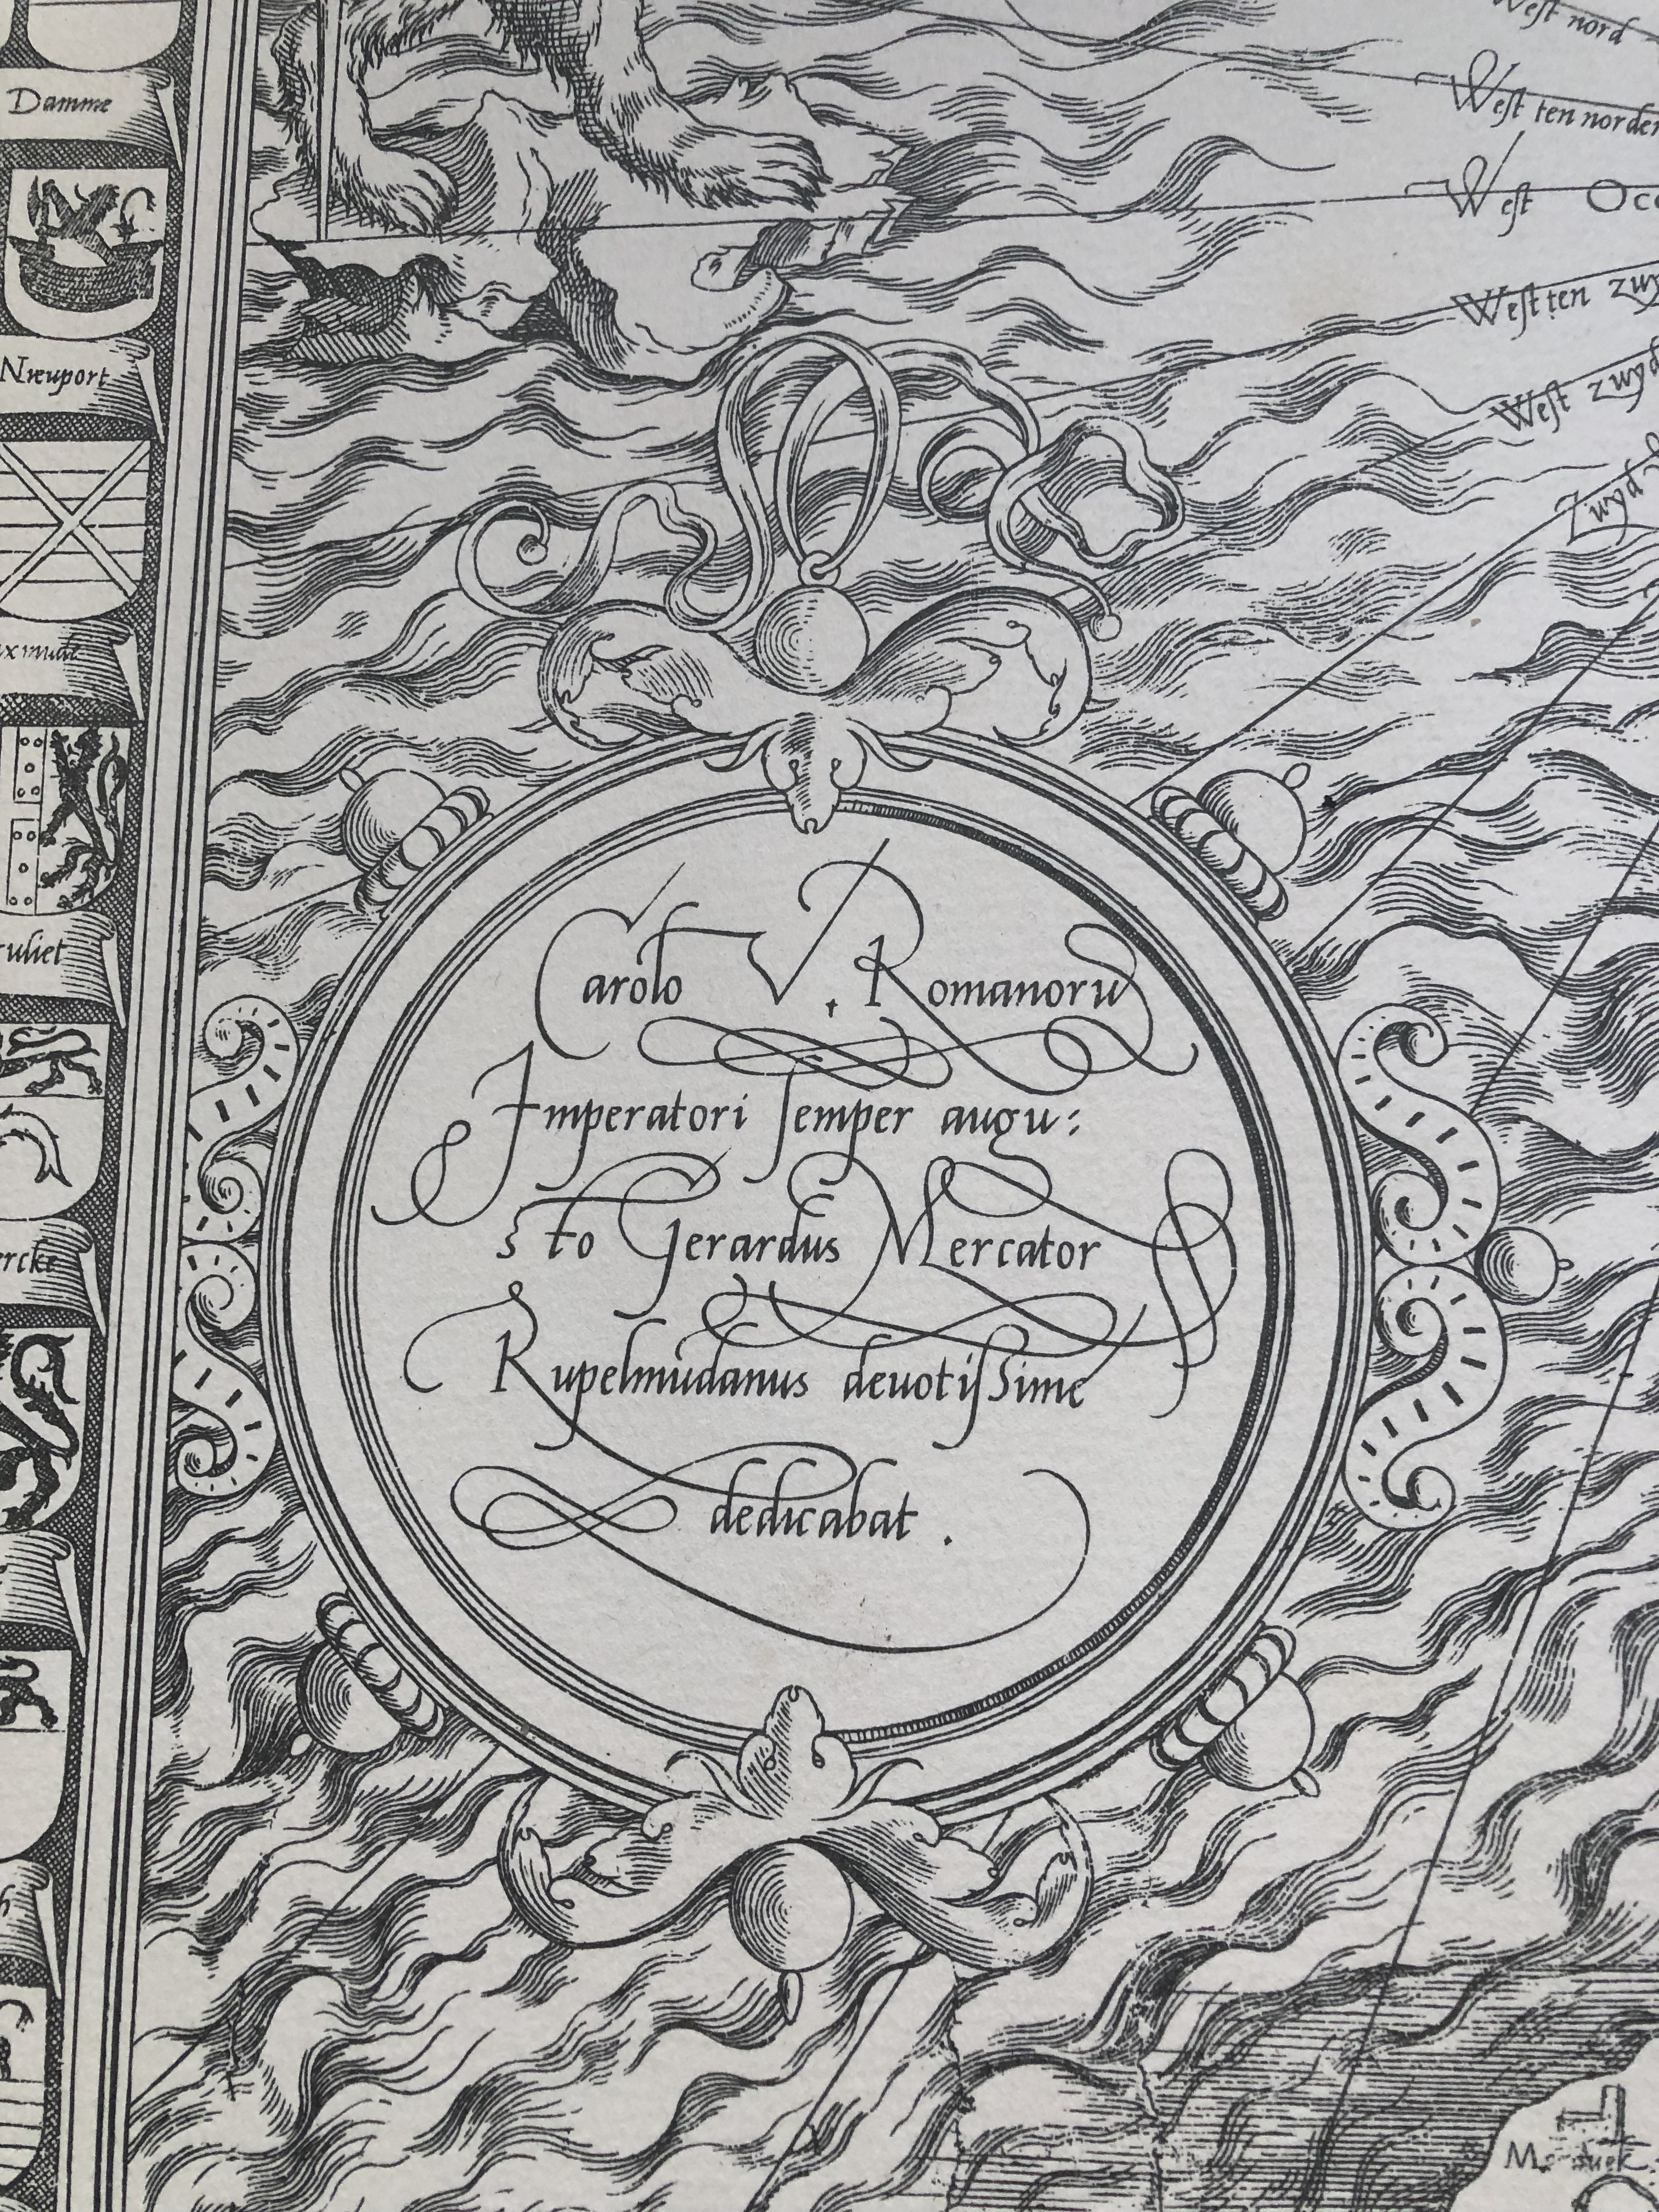 Damme
Nieuport
uliet
ercke
West nord
West ten norden
West Occ
West ten zwy
West zwyd
Zwyd
Carolo V. Romanorū
Imperatori semper augu:
sto Gerardus Mercator
Rupelmūdanus deuotissime
dedicabat.